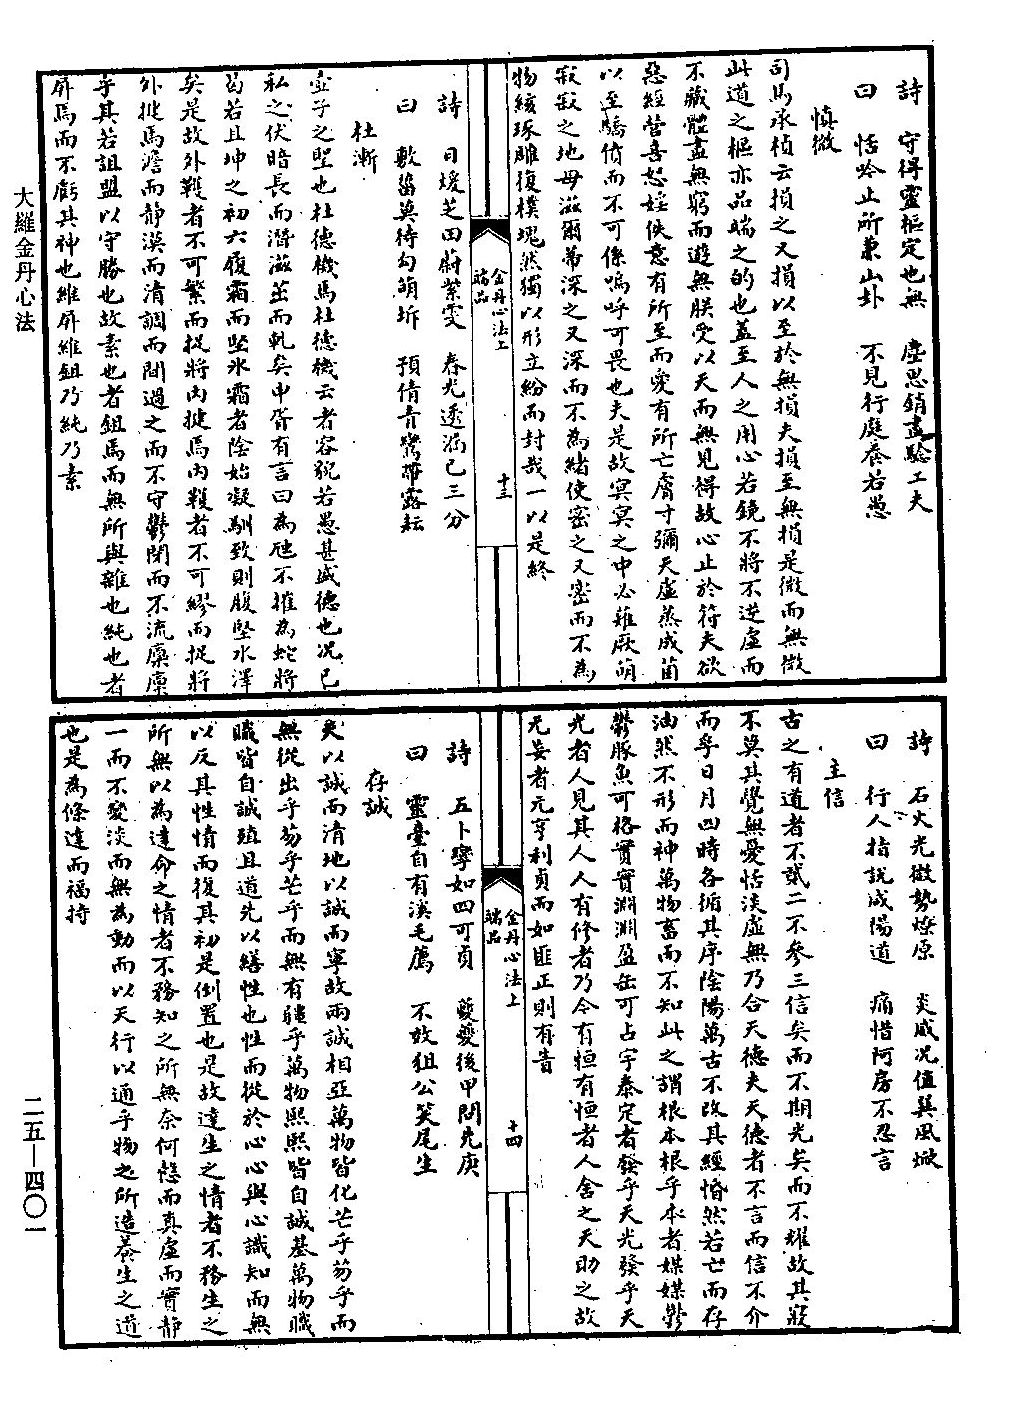 詩　守得靈樞定也無　塵思銷盡驗工夫
曰　恬吟止所兼山卦　不見行庭養若愚
慎微
司馬承禎云損之又損以至於無損夫損至無損是微而無微
此道之樞亦品端之的也蓋至人之用心若鏡不將不逆虛而
不臟體盡無窮而遊無朕受以天而無見得故心止於符夫欲
惡經營喜怒婬佚意有所至而愛有所亡膚寸彌天虛蒸成菌
以至驕僨而不可係嗚呼可畏也夫是故冥冥之中必薙厥萌
寂寂之地毋滋爾蒂深之又深而不為緒使密之又密而不為
物絯琢雕復樸塊然獨以形立紛而封哉一以是終
金丹心法上
端品
十三
詩　日煖芝田蔚紫雯　春光透漏已三分
曰　敷菑莫待勾萌坼　預倩青鸞帶露耘
杜漸
壺子之聖也杜德機焉杜德機云者容貌若愚甚盛德也況已
私之伏暗長而潛滋茁而軋矣申胥有言曰為虺不摧為蛇將
曷若且坤之初六履霜而堅氷霜者陰始凝馴致則腹堅水澤
矣是故外韄者不可繁而捉將內揵焉內韄者不可繆而捉將
外揵焉澹而靜漠而清調而間過之而不守鬱閉而不流廩廩
乎其若詛盟以守勝也故素也者鉏焉而無所與雜也純也者
屏焉而不虧其神也維屏維鉏乃純乃素
大羅金丹心法
詩　石火光微勢燎原　炎威况值巽風焮
曰　行人指說咸陽道　痛惜阿房不忍言
主信
古之有道者不貳二不參三信矣而不期光矣而不耀故其寢
不莫其覺無憂恬淡虛無乃合天德夫天德者不言而信不介
而孚日月四時各循其序陰陽萬古不改其經惛然若亡而存
油然不形而神萬物畜而不知此之謂根本根乎本者媒媒鬱
鬱豚魚可格實實淵淵盈缶可占宇泰定者發乎天光發乎天
光者人見其人人有修者乃今有恒有恒者人舍之天助之故
无妄者元亨利貞而如匪正則有眚
金丹心法上
端品
十四
詩　五卜寧如四可貞　變變後甲問先庚
曰　靈臺自有溪毛薦　不效狙公笑尾生
存誠
天以誠而清地以誠而寧故兩誠相亞萬物皆化芒乎芴乎而
無從出乎芴乎芒乎而無有疆乎萬物熙熙皆自誠基萬物職
職皆自誠殖且道先以繕性也性而從於心心與心識知而無
以反其性情而復其初是倒置也是故達生之情者不務生之
所無以為達命之情者不務知之所無奈何愨而真虛而實靜
一而不變淡而無為動而以天行以通乎物之所造養生之道
也是為條達而福持
二五—四〇一